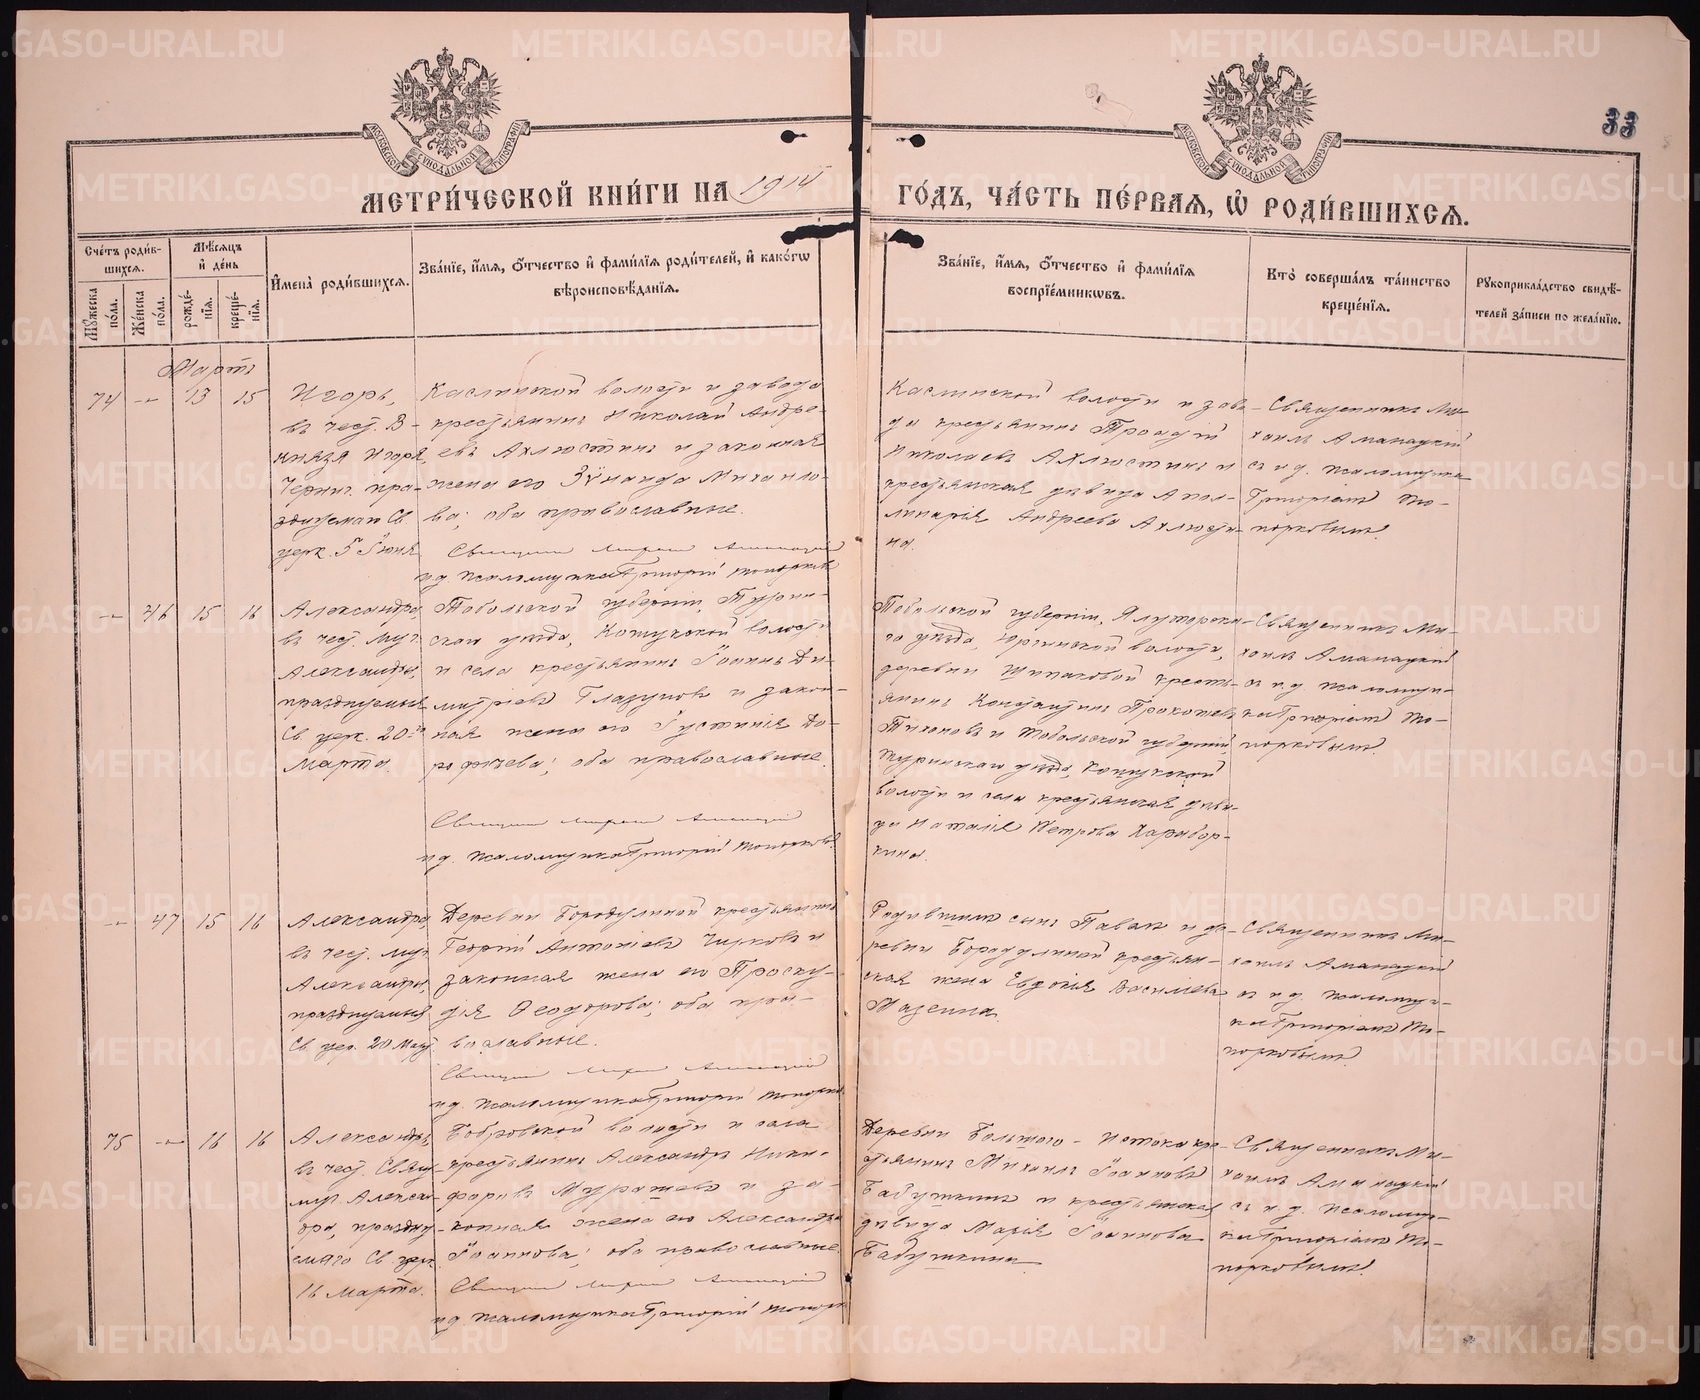 33
МЕТРИ́ЧЕСКОЙ КНИ́ГИ НА 1914 ГО́ДЪ, ЧА́СТЬ ПЕ́РВАЯ, Ѡ҆ РОДИ́ВШИХСЯ.
Сче́тъ роди́в-
шихся.
Мѣ́сяцъ
и҆ де́нь
И҆мена̀ роди́вшихся.
Зва́нїе, и҆́мя, о҆́тчество и҆ фами́лїя роди́телей, и҆ како́гѡ
вѣроисповѣ́данїя.
Зва́нїе, и҆́мя, о҆́тчество и҆ фами́лїя
воспрїе́мникѡвъ.
Кто̀ соверша́лъ та́инство
креще́нїя.
Рꙋкоприкла́дство свидѣ́-
телей за́писи по жела́нїю.
Мꙋ́жеска
по́ла.
Же́нска
по́ла.
рожде́-
нїя.
креще́-
нїя.
Мартъ
74 — 13 15
Игорь,
въ чест. В.
князя Игоря
Черниг. пра-
зднуемаго Св.
церк. 5 Іюня
Каслинской волости и завода
крестьянинъ Николай Андре-
евъ Ахлюстинъ и законная
жена его Зѵнаида Михаило-
ва; оба православные.
Священникъ Михаилъ Аманацкій
и д. псаломщика Григорій Топорковъ
Каслинской волости и заво-
да крестьянинъ
Николаевъ Ахлюстинъ и
крестьянская дѣвица Апол-
линарія Андреева Ахлюсти-
на.
Священникъ Ми-
хаилъ Аманацкій
съ и д. псаломщика
Григоріемъ То-
порковымъ.
— 46 15 16
Александра,
въ чест. муч.
Александры,
празднуемыя
Св. церк. 20-го
Марта.
Тобольской губерніи, Турин-
скаго уѣзда, Кошукской волости
и села крестьянинъ Іоаннъ Ди-
митріевъ Глазуновъ и закон-
ная жена его Іустинія До-
рофѣева; оба православные.
Священникъ Михаилъ Аманацкій
и д. псаломщика Григорій Топорковъ
Тобольской губерніи, Ялуторска-
го уѣзда, Юргинской волости,
деревни Шипаковой кресть-
янинъ Константинъ Прокопьевъ
Тихоновъ и Тобольской губерніи,
Туринскаго уѣзда, Кошукской
волости и села крестьянская дѣви-
ца Наталія Петрова Карабор-
кина.
Священникъ Ми-
хаилъ Аманацкій
съ и д. псаломщи-
ка Григоріемъ То-
порковымъ.
— 47 15 16
Александра,
въ чест. муч.
Александры,
празднуемыя
Св. цер. 20 Март
Деревни Бородулиной крестьянинъ
Георгій Антоніевъ Чирковъ и
законная жена его Проску-
дія Ѳеодорова; оба пра-
вославные.
Священникъ Михаилъ Аманацкій
и д. псаломщика Григорій Топорковъ
Родившихъ сынъ Павелъ и де-
ревни Бородулиной крестьян-
ская жена Евдокія Васильева
Мазеина.
Священникъ Ми-
хаилъ Аманацкій
съ и д. псаломщи-
ка Григоріемъ То-
порковымъ.
75 — 16 16
Александръ,
въ чест. Свящ.
муч. Алексан-
дра, праздну-
емаго Св. церк.
16 Марта.
Бобровской волости и села
крестьянинъ Александръ Ники-
форовъ Мурашевъ и за-
конная жена его Александра
Іоаннова; оба православные.
Священникъ Михаилъ Аманацкій
и д. псаломщика Григорій Топорковъ
Деревни Большого-Истока кре-
стьянинъ Михаилъ Іоанновъ
Бабушкинъ и крестьянская
дѣвица Марія Іоаннова
Бабушкина
Священникъ Ми-
хаилъ Аманацкій
съ и д. псаломщи-
ка Григоріемъ То-
порковымъ.
METRIKI.GASO-URAL.RU